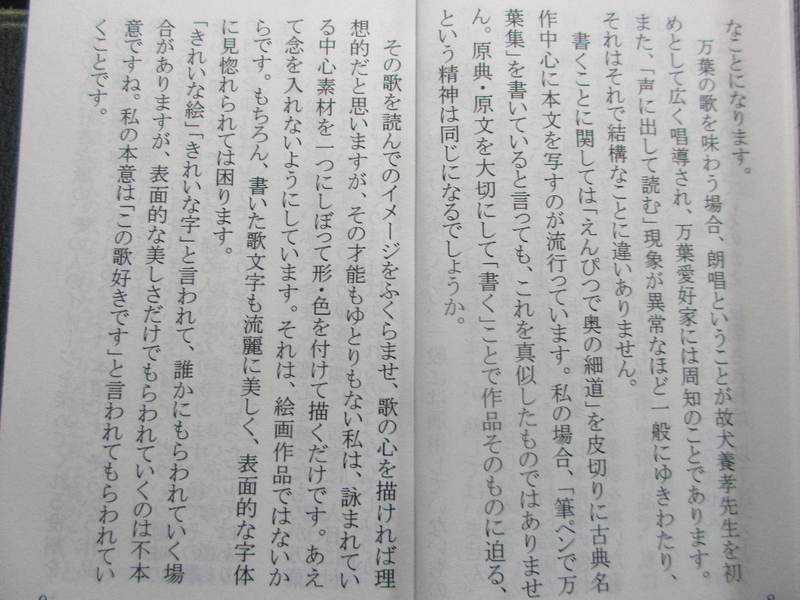 なことになります。
万葉の歌を味わう場合、朗唱ということが故犬養孝先生を初
めとして広く唱導され、万葉愛好家には周知のことであります。
また、「声に出して読む」現象が異常なほど一般にゆきわたり、
それはそれで結構なことに違いありません。
書くことに関しては「えんぴつで奥の細道」を皮切りに古典名
作中心に本文を写すのが流行っています。私の場合、「筆ペンで万
葉集」を書いていると言っても、これを真似したものではありませ
ん。原典・原文を大切にして「書く」ことで作品そのものに迫る、
という精神は同じになるでしょうか。
その歌を読んでのイメージをふくらませ、歌の心を描ければ理
想的だと思いますが、その才能もゆとりもない私は、詠まれてい
る中心素材を一つにしぼって形・色を付けて描くだけです。あえ
て念を入れないようにしています。それは、絵画作品ではないか
らです。もちろん、書いた歌文字も流麗に美しく、表面的な字体
に見惚れられては困ります。
「きれいな絵」「きれいな字」と言われて、誰かにもらわれていく場
合がありますが、表面的な美しさだけでもらわれていくのは不本
意ですね。私の本意は「この歌好きです」と言われてもらわれてい
くことです。